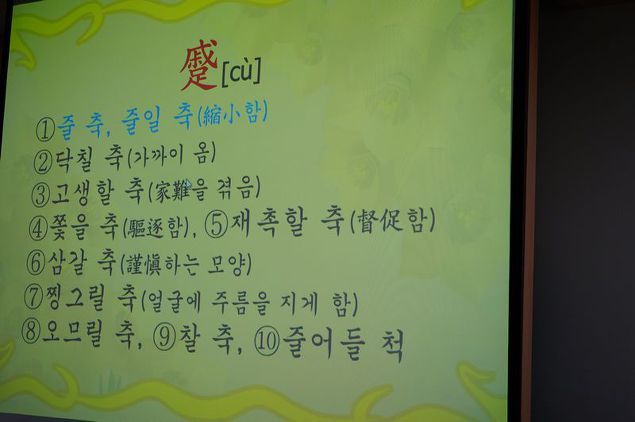 蹙[cù]
①줄 축, 줄일 축(縮小함)
②닥칠 축(가까이 옴)
③고생할 축(家難을 겪음)
④쫓을 축(驅逐함), ⑤재촉할 축(督促함)
⑥삼갈 축(謹愼하는 모양)
⑦찡그릴 축(얼굴에 주름을 지게 함)
⑧오므릴 축, ⑨찰 축, ⑩줄어들 척